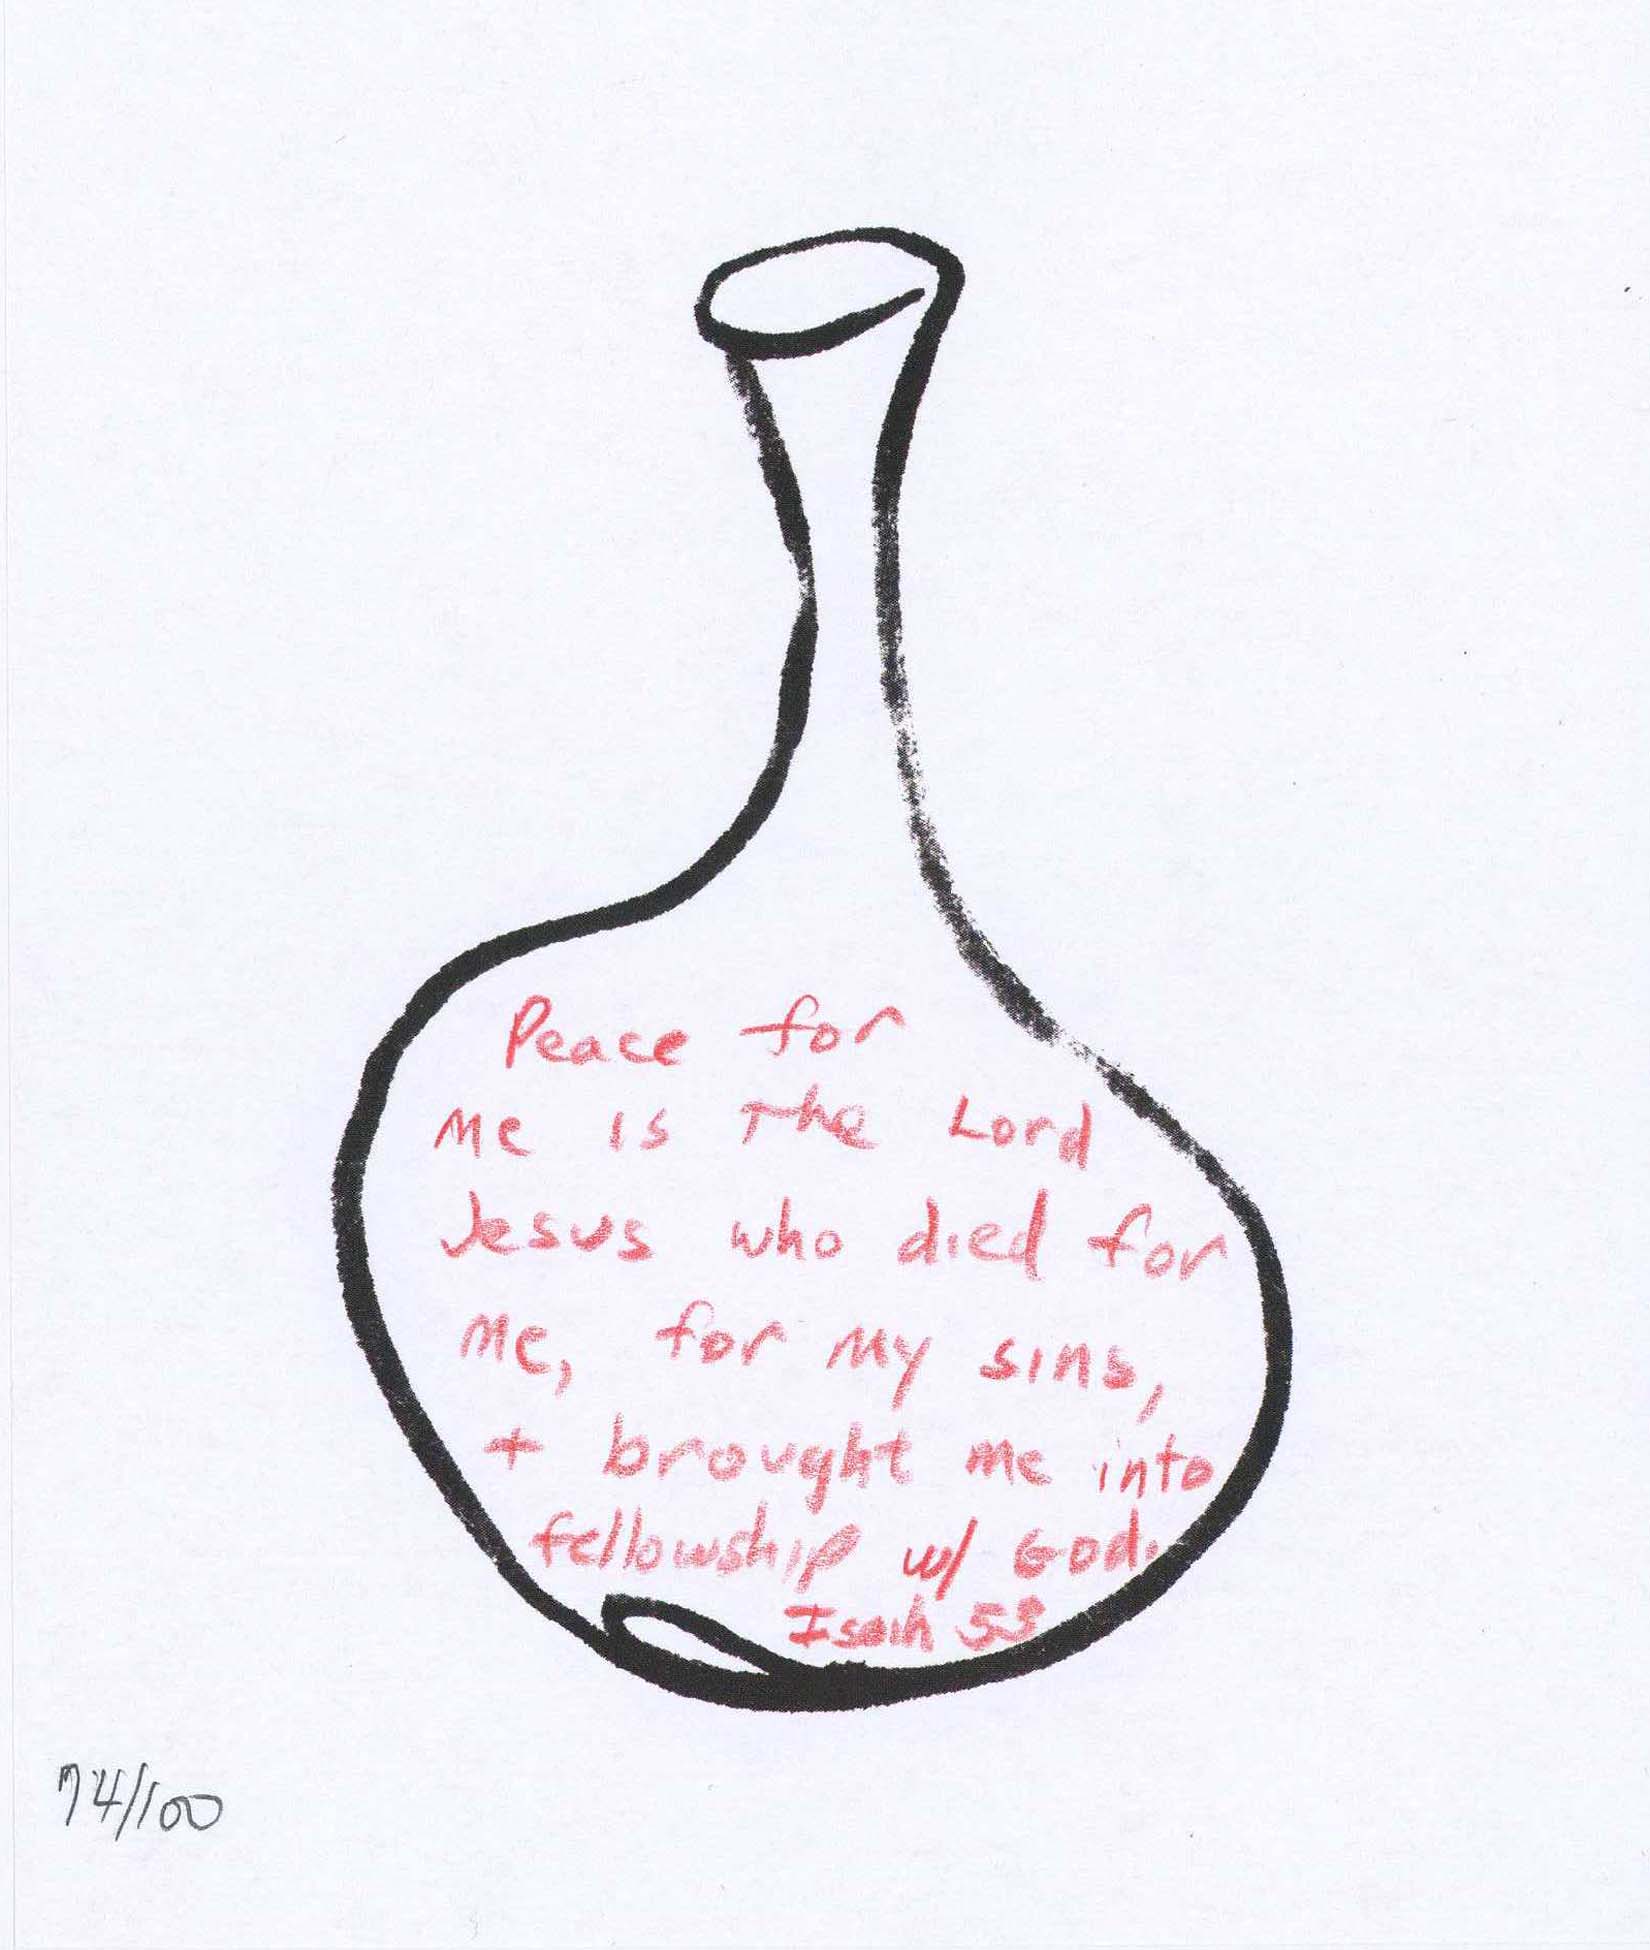 Peace for
me is the Lord
Jesus who died for
me, for my sins,
+ brought me into
fellowship w/ God.
Isaih 53
74/100